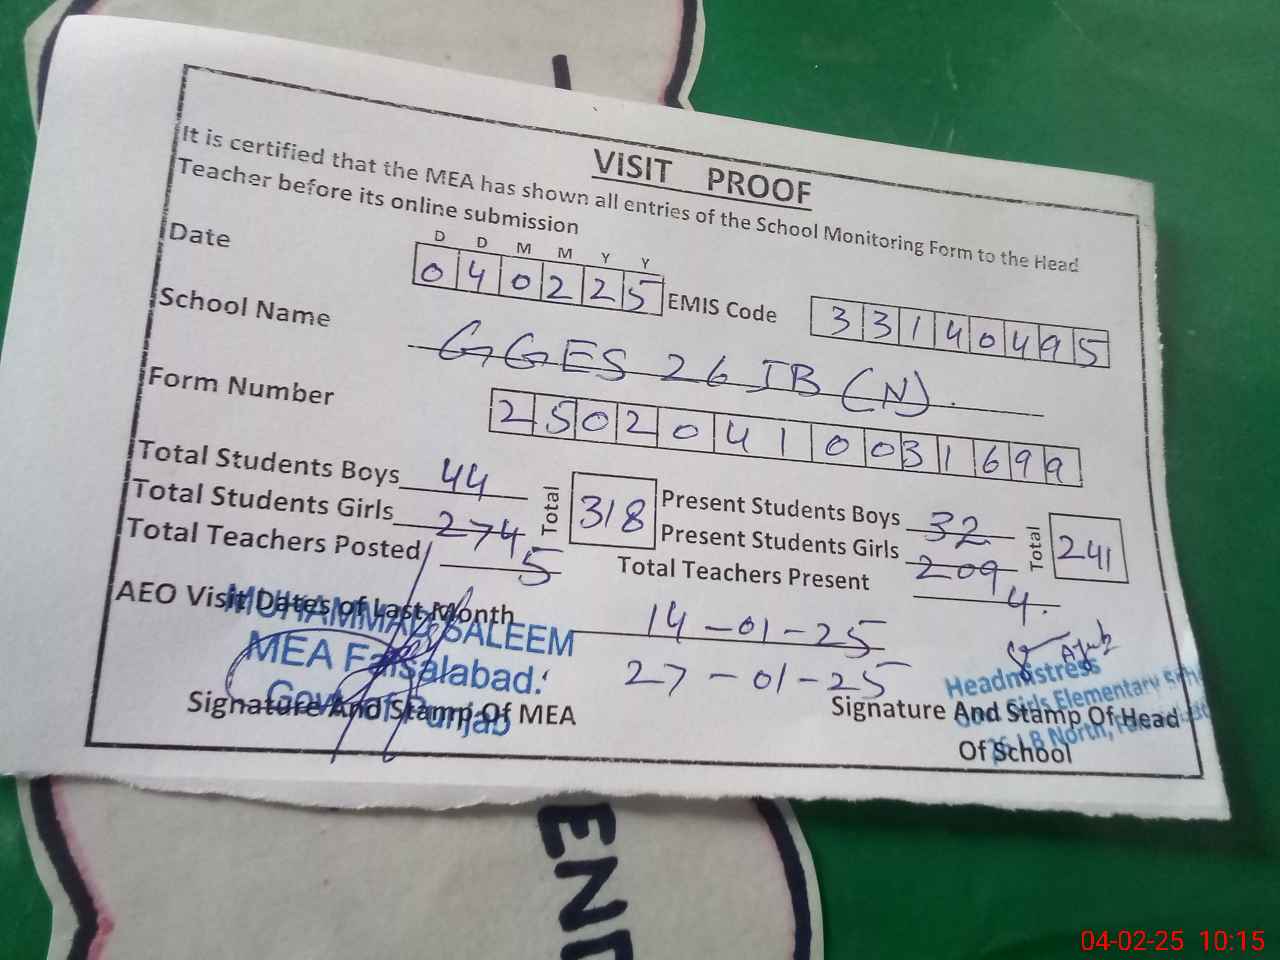 VISIT PROOF
It is certified that the MEA has shown all entries of the School Monitoring Form to the Head
Teacher before its online submission
D D M M Y Y
Date 040225 EMIS Code 33140495
School Name GGES 26 JB (N).
Form Number 25020410031699
Total Students Boys 44 Total 318 Present Students Boys 32 Total 241
Total Students Girls 274 Present Students Girls 209
Total Teachers Posted 5 Total Teachers Present 4.
AEO Visit Dates of Last Month 14-01-25
27-01-25
MUHAMMAD SALEEM
MEA Faisalabad.
Govt. of Punjab
Signature And Stamp Of MEA
Headmistress
Girls Elementary
JB North,
Signature And Stamp Of Head
Of School
END
04-02-25 10:15